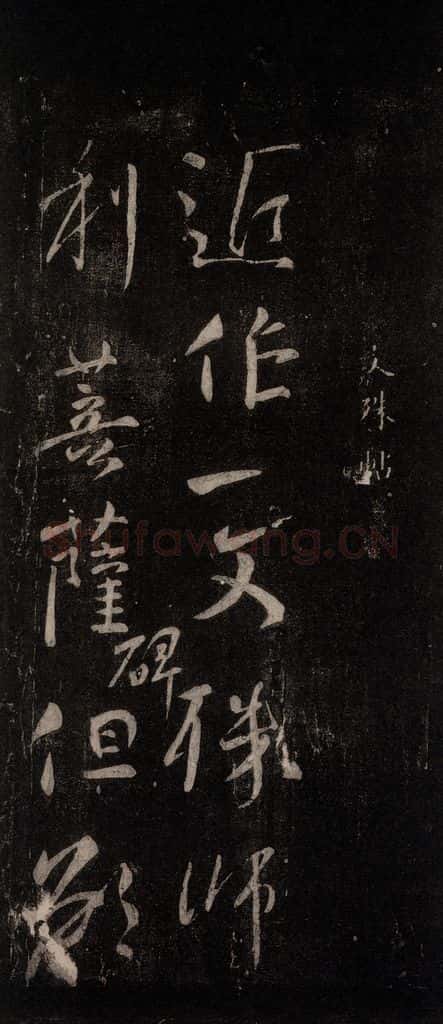 文殊帖
近作一文殊師
利菩薩碑但欲
shufawang.CN